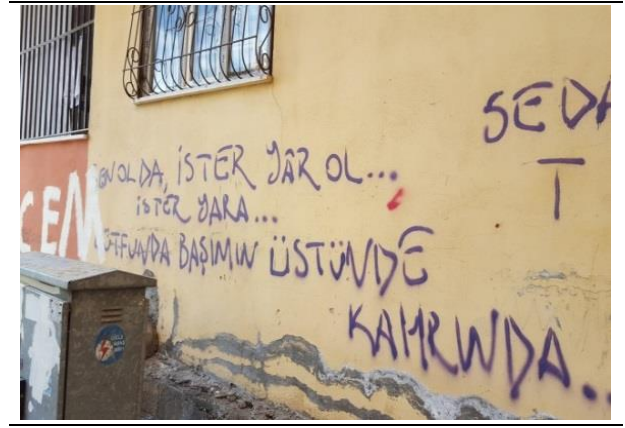 SEDA
T
SEN OL DA, İSTER YÂR OL...
İSTER YARA...
LÜTFUNDA BAŞIMIN ÜSTÜNDE
KAHRINDA..
CEM